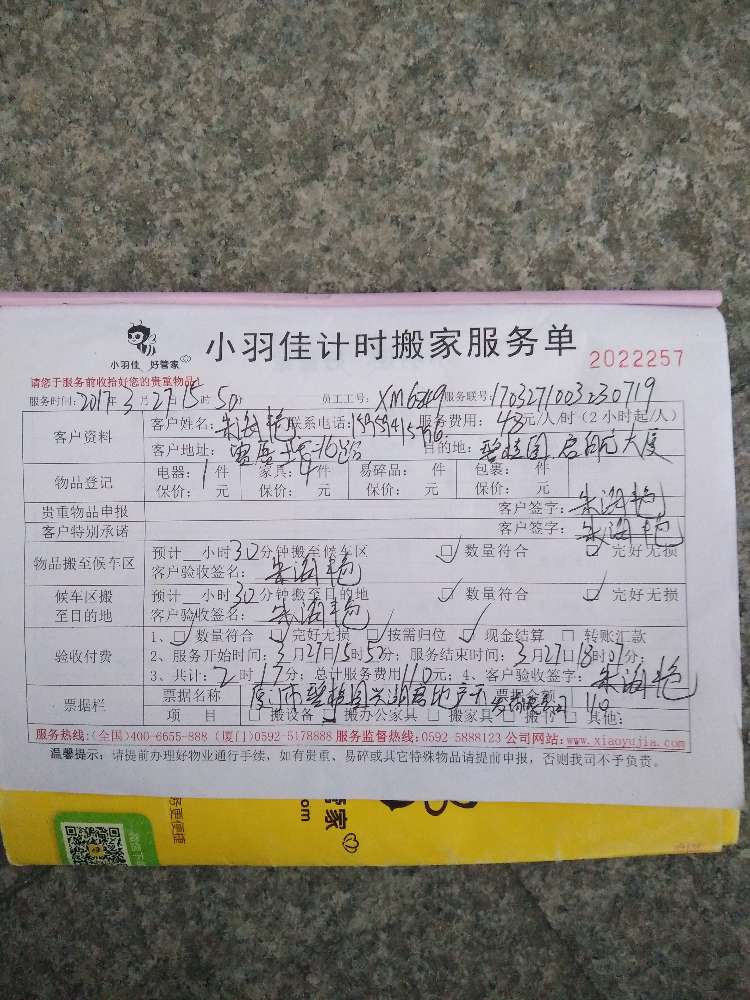 小羽佳 好管家
小羽佳计时搬家服务单
2022257
请您于服务前收拾好您的贵重物品!
服务时间:2017年3月27日15时50分 员工工号:XM6549 服务联号:1703271003230719
客户资料
客户姓名:朱海艳 联系电话: 服务费用:48元/人/时(2小时起/人)
客户地址: 目的地:碧桂园 大厦
物品登记
电器:1件 家具:4件 易碎品: 件 包装: 件
保价: 元 保价: 元 保价: 元 保价: 元
贵重物品申报 客户签字:朱海艳
客户特别承诺 客户签字:朱海艳
物品搬至候车区
预计 小时30分钟搬至候车区 数量符合 完好无损
客户验收签名:朱海艳
候车区搬至目的地
预计 小时30分钟搬至目的地 数量符合 完好无损
客户验收签名:朱海艳
验收付费
1、数量符合 完好无损 按需归位 现金结算 转账汇款
2、服务开始时间:3月27日15时50分;服务结束时间:3月27日18时07分;
3、共计:2时17分;总计服务费用110元;4、客户验收签字:朱海艳
票据栏
票据名称 碧桂园 票据金额 110
项 目 搬设备 搬办公家具 搬家具 搬 其他:
服务热线:(全国)400-6655-888 (厦门)0592-5178888 服务监督热线:0592-5888123 公司网站:www.xiaoyujia.com
温馨提示:请提前办理好物业通行手续,如有贵重、易碎或其它特殊物品请提前申报,否则我司不予负责。
管家
om